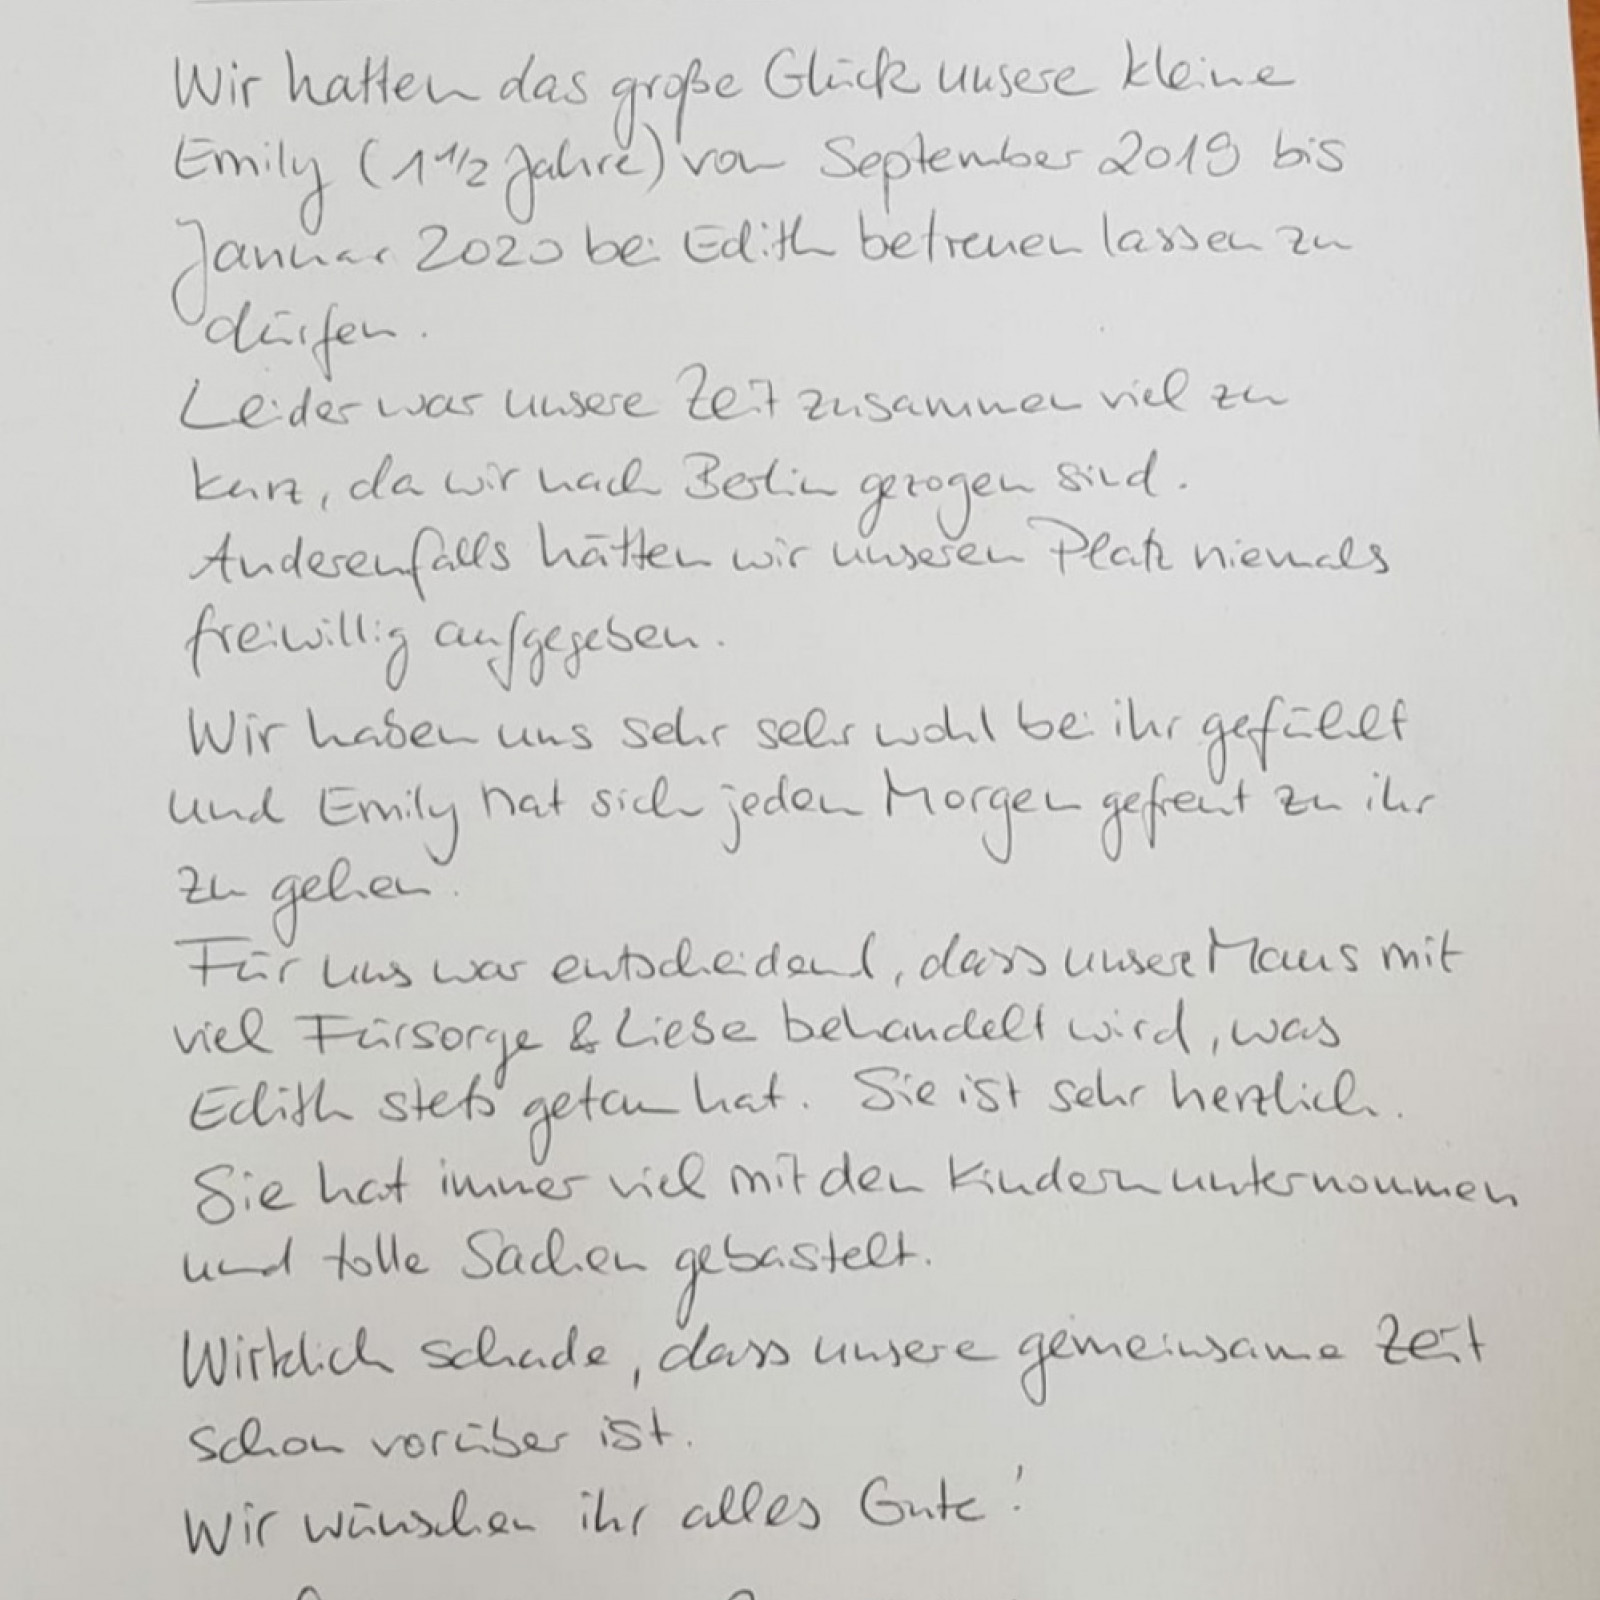 Wir hatten das große Glück unsere kleine
Emily (1 1/2 Jahre) von September 2019 bis
Januar 2020 bei Edith betreuen lassen zu
dürfen.
Leider war unsere Zeit zusammen viel zu
kurz, da wir nach Berlin gezogen sind.
Anderenfalls hätten wir unseren Platz niemals
freiwillig aufgegeben.
Wir haben uns sehr sehr wohl bei ihr gefühlt
und Emily hat sich jeden Morgen gefreut zu ihr
zu gehen.
Für uns war entscheidend, dass unsere Maus mit
viel Fürsorge & Liebe behandelt wird, was
Edith stets getan hat. Sie ist sehr herzlich.
Sie hat immer viel mit den Kindern unternommen
und tolle Sachen gebastelt.
Wirklich schade, dass unsere gemeinsame Zeit
schon vorüber ist.
Wir wünschen ihr alles Gute!